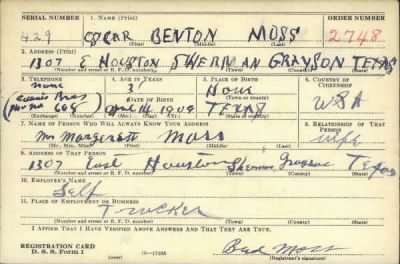 SERIAL NUMBER 1. NAME (Print) ORDER NUMBER
429 OSCAR BENTON MOSS 2748
(First) (Middle) (Last)
2. ADDRESS (Print)
1307 E HOUSTON SHERMAN GRAYSON TEXAS
(Number and street or R. F. D. number) (Town) (County) (State)
3. TELEPHONE 4. AGE IN YEARS 5. PLACE OF BIRTH 6. COUNTRY OF CITIZENSHIP
None 31 Howe
DATE OF BIRTH (Town or county)
668 1909 TEXAS USA
(Exchange) (Number) (Mo.) (Day) (Yr.) (State or country)
7. NAME OF PERSON WHO WILL ALWAYS KNOW YOUR ADDRESS 8. RELATIONSHIP OF THAT PERSON
Mrs Margarett Moss wife
(Mr., Mrs., Miss) (First) (Middle) (Last)
9. ADDRESS OF THAT PERSON
1307 East Houston Sherman Grayson Texas
(Number and street or R. F. D. number) (Town) (County) (State)
10. EMPLOYER'S NAME
Self
11. PLACE OF EMPLOYMENT OR BUSINESS
Trucker
(Number and street or R. F. D. number) (Town) (County) (State)
I AFFIRM THAT I HAVE VERIFIED ABOVE ANSWERS AND THAT THEY ARE TRUE.
REGISTRATION CARD
D. S. S. Form 1 Bud Moss
(Registrant's signature)